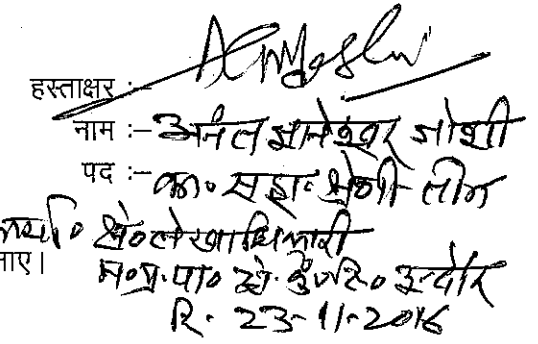 हस्ताक्षर :-
नाम :- अनंत ज्ञानेश्वर जोशी
पद :- का० सहा० श्रेणी तीन
क्षे० लेखाधिकारी
नाए।
म०प्र०पा० क्षे० इन्दौर
दि. 23-11-2016